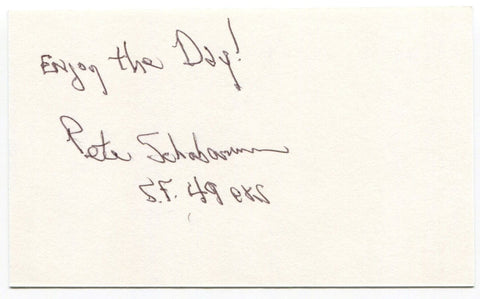 Enjoy the Day!
Pete Schabarum
S.F. 49ers